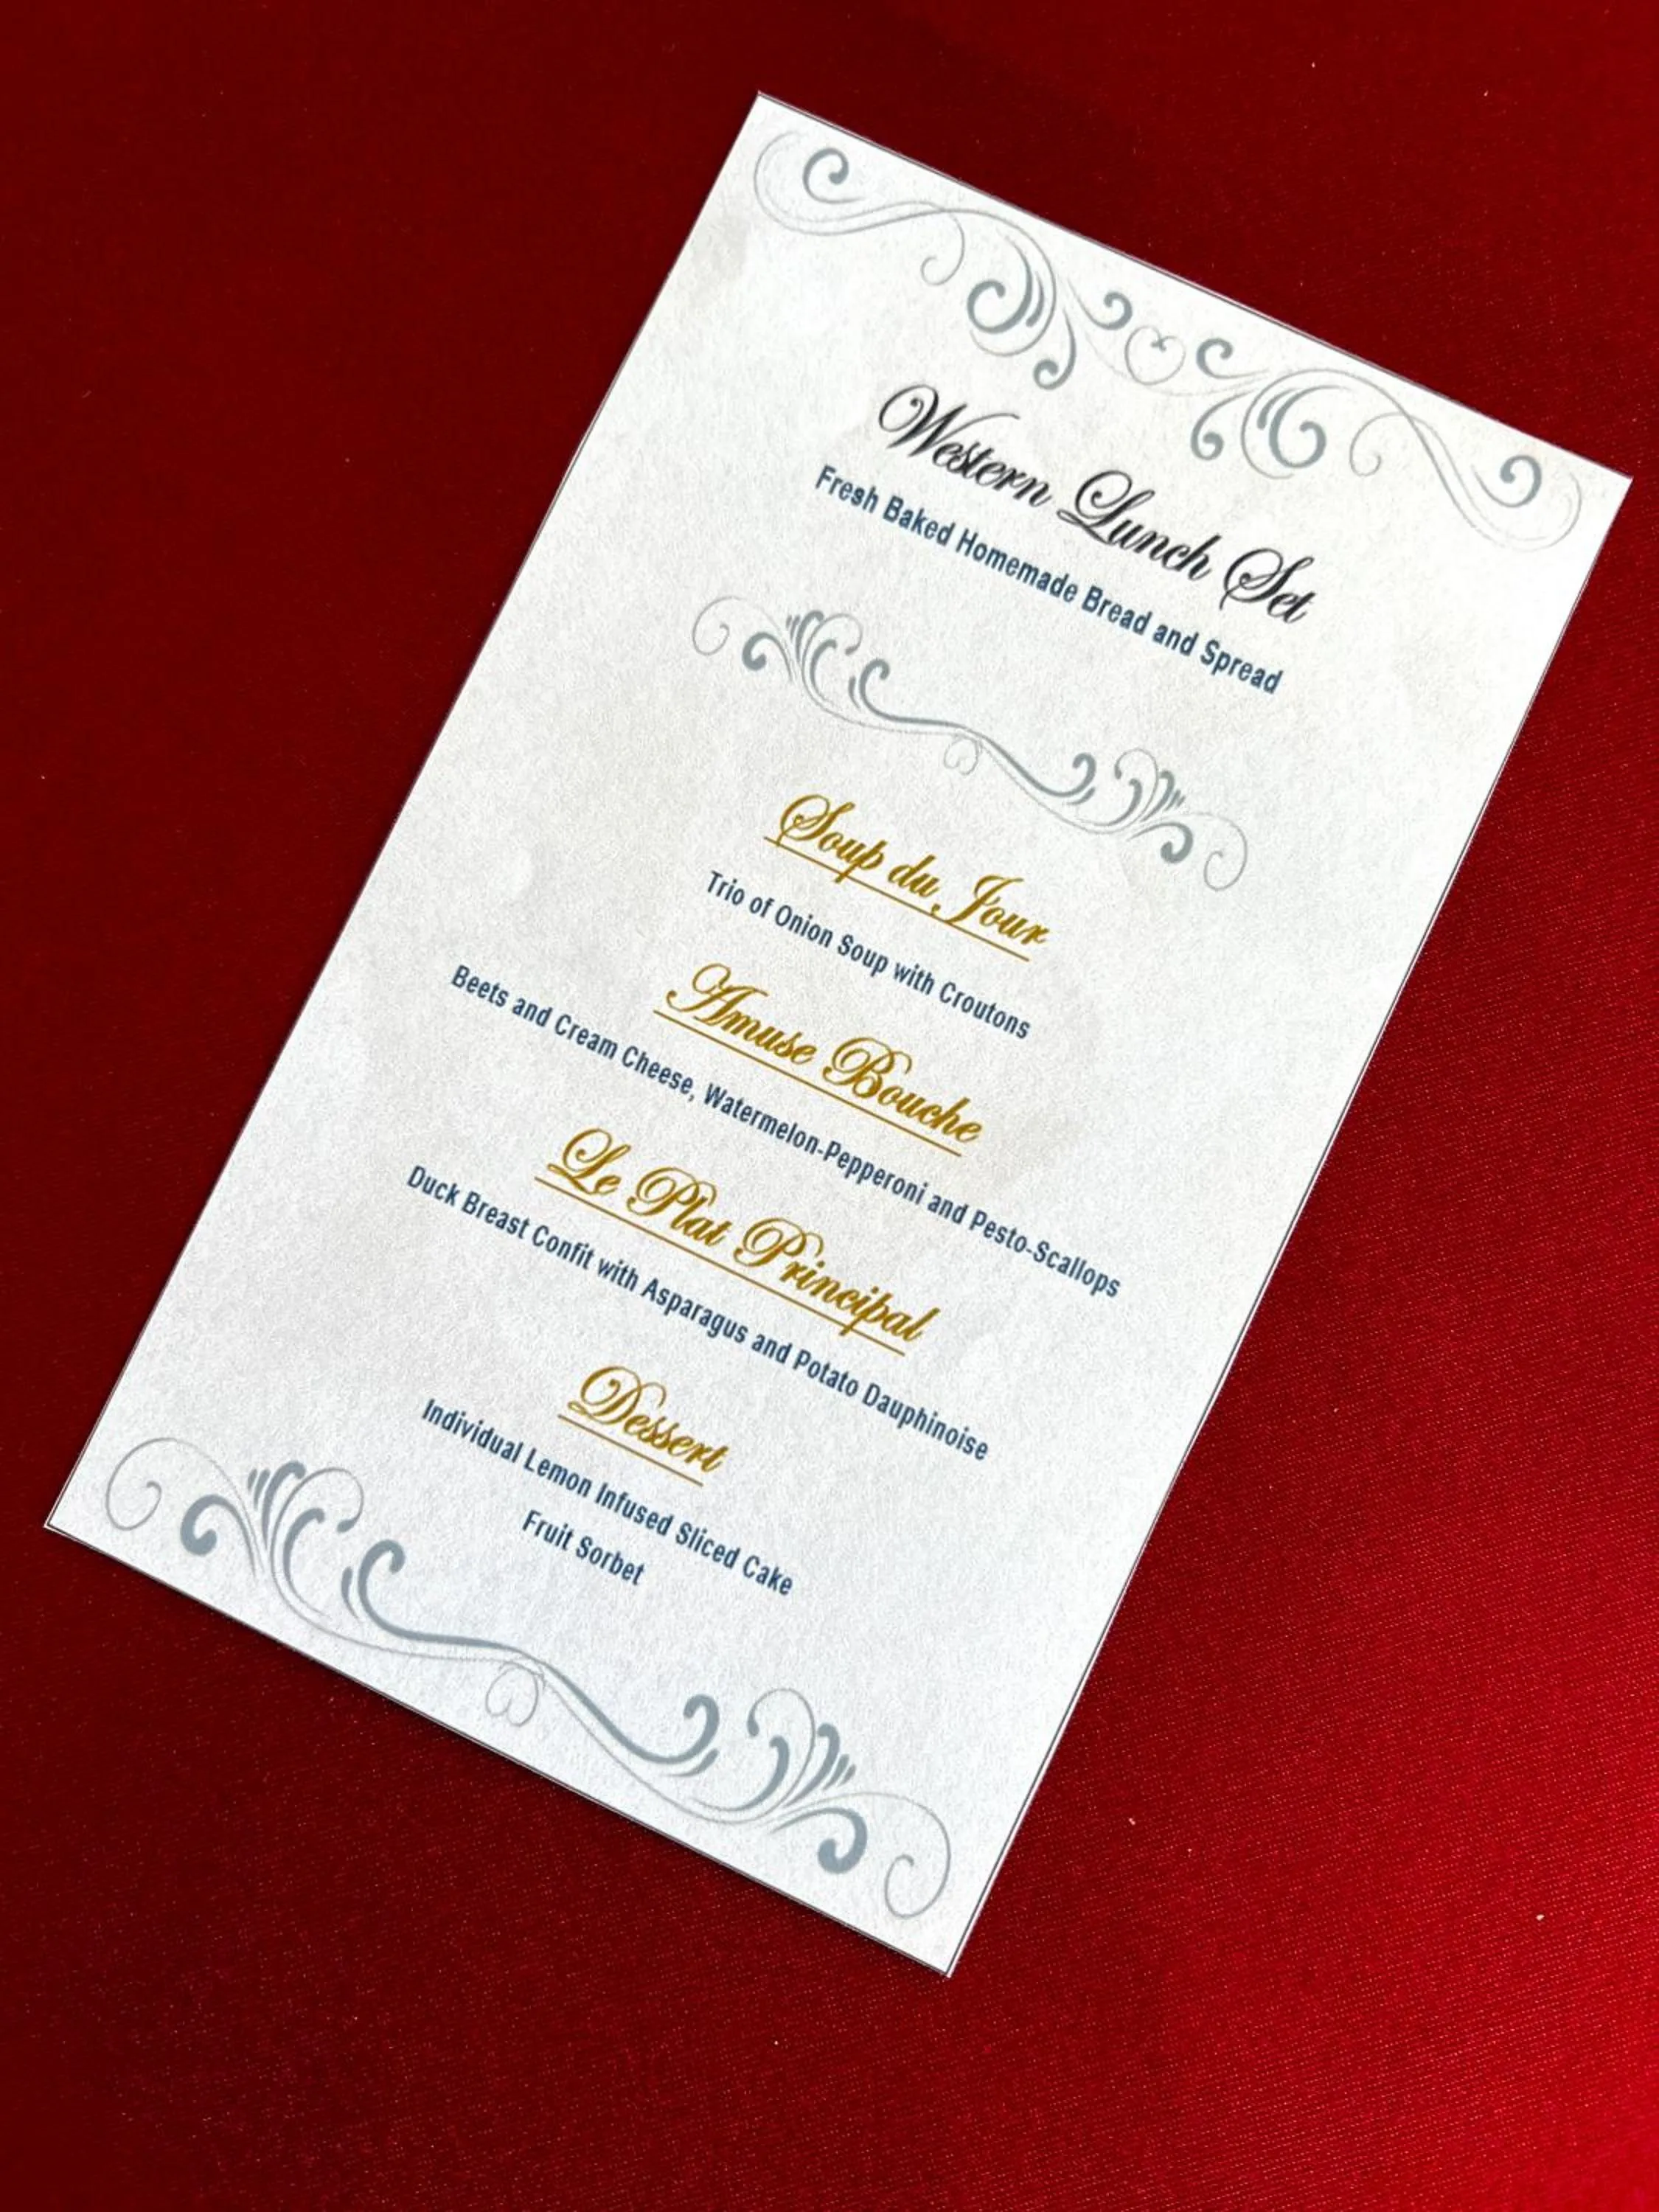 Western Lunch Set
Fresh Baked Homemade Bread and Spread
Soup du Jour
Trio of Onion Soup with Croutons
Amuse Bouche
Beets and Cream Cheese, Watermelon-Pepperoni and Pesto-Scallops
Le Plat Principal
Duck Breast Confit with Asparagus and Potato Dauphinoise
Dessert
Individual Lemon Infused Sliced Cake
Fruit Sorbet